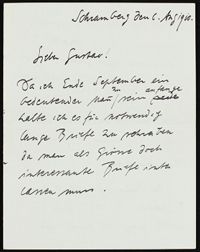 Schramberg den 6. Aug 1920.
Lieber Gustav!
Da ich Ende September ein
bedeutender Mann zu sein anfange
halte ich es für notwendig
lange Briefe zu schreiben
da man als Grosse doch
interessante Briefe hinter
lassen muss.